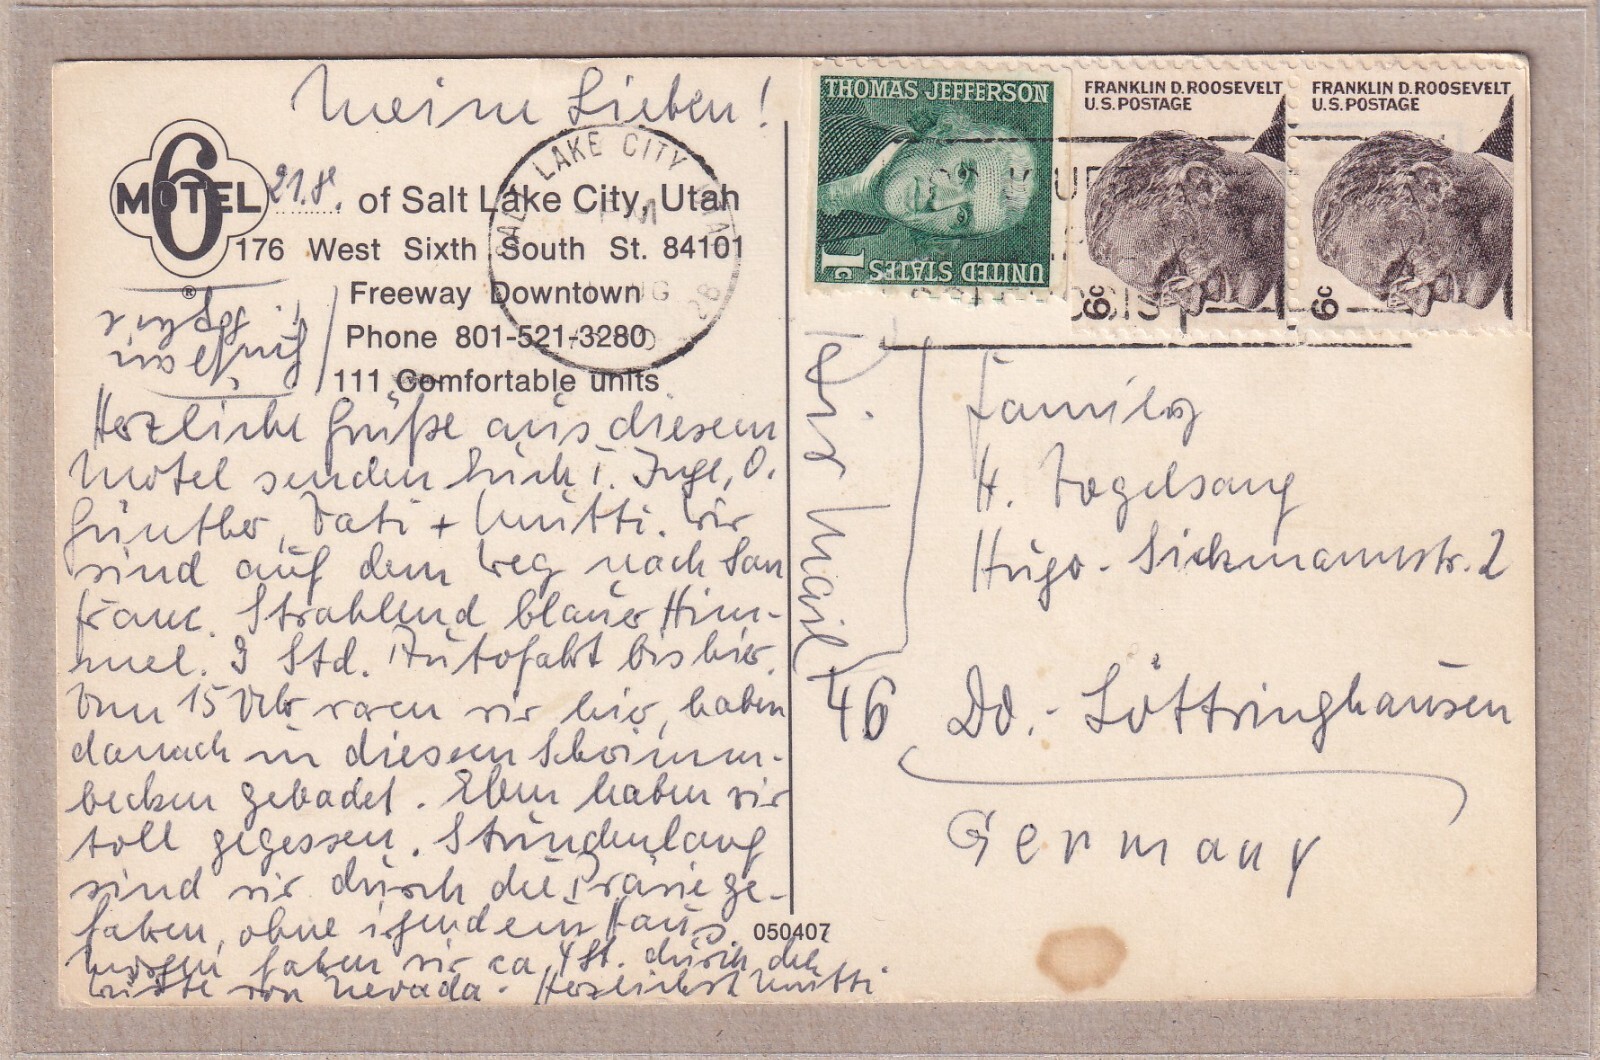 Meine Lieben!
MOTEL 6
®
21.8. of Salt Lake City, Utah
176 West Sixth South St. 84101
Freeway Downtown
Phone 801-521-3280
111 Comfortable units
Herzliche Grüße aus diesem
Motel senden Euch T. Inge, O.
Günther, Vati + Mutti. Wir
sind auf dem Weg nach San
Franc. Strahlend blauer Him-
mel. 9 Std. Autofahrt bis hier.
Um 15 Uhr waren wir hier, haben
danach in diesem Schwimm-
becken gebadet. Eben haben wir
toll gegessen. Stundenlang
sind wir durch die Prärie ge-
fahren, ohne irgendein Haus.
Morgen fahren wir ca 4 St. durch die
Wüste von Nevada. Herzlichst Mutti
050407
SALT LAKE CITY
THOMAS JEFFERSON
1c
UNITED STATES
FRANKLIN D. ROOSEVELT
U.S. POSTAGE
6c
FRANKLIN D. ROOSEVELT
U.S. POSTAGE
6c
Air Mail
Family
H. Vogelsang
Hugo-Sickmannstr. 2
46 Do.-Löttringhausen
Germany